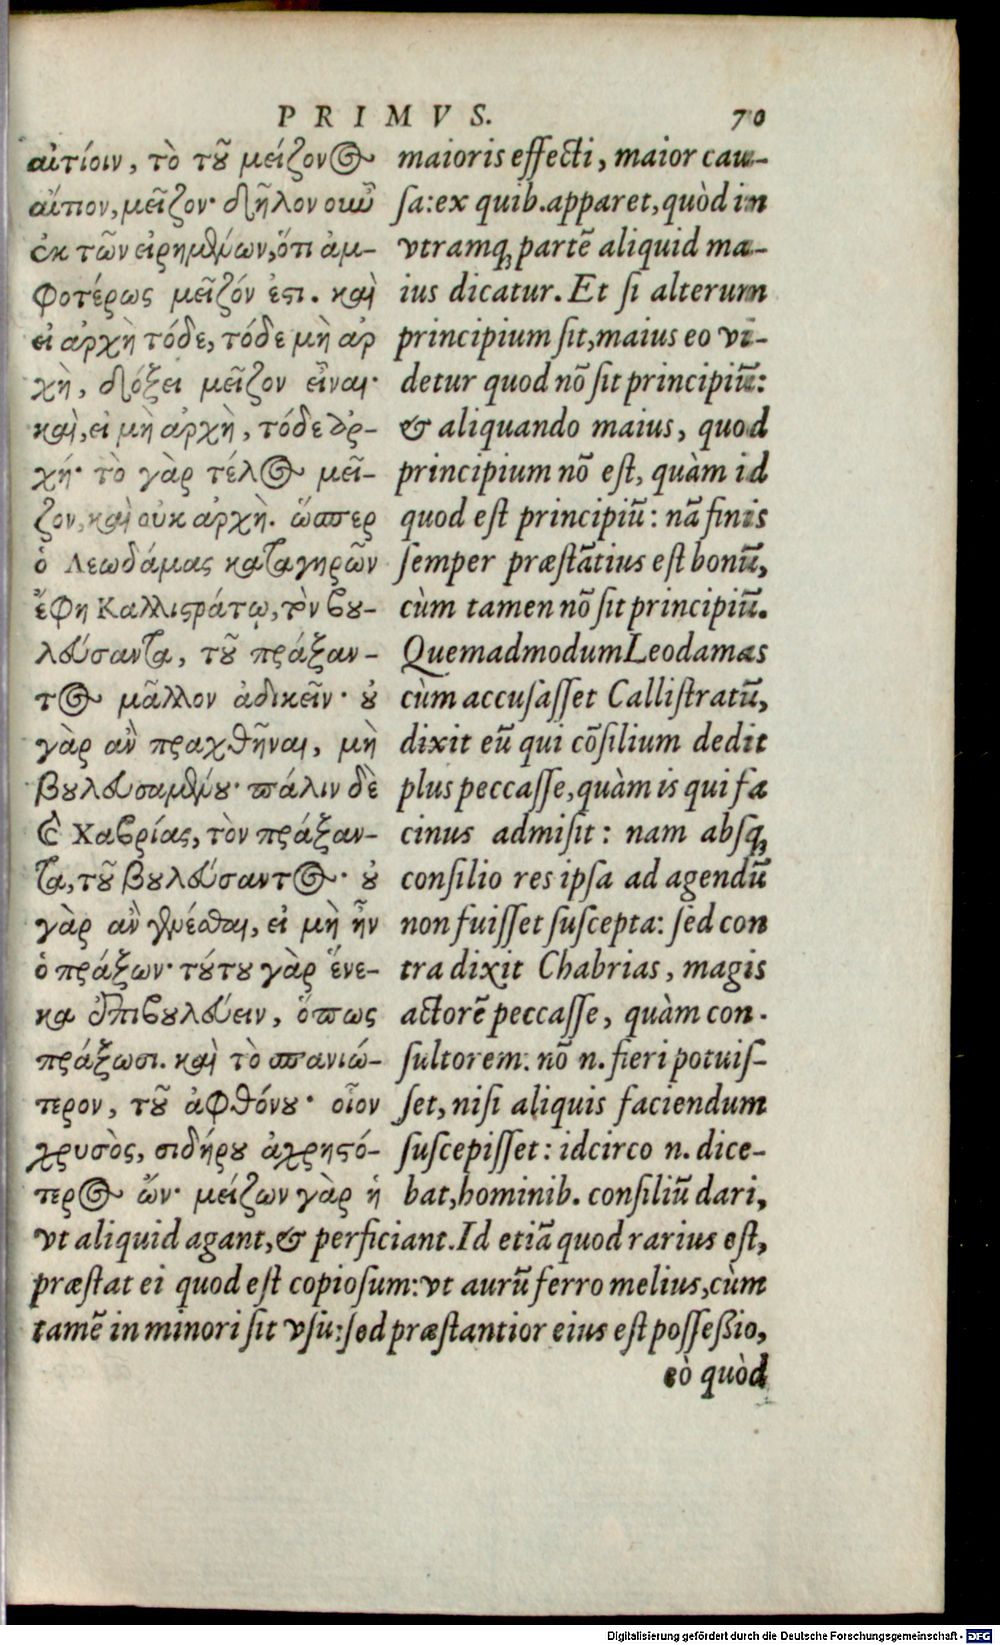 PRIMVS. 70
αἰτίοιν, τὸ τοῦ μείζονος
αἴτιον, μεῖζον· δῆλον οὖν
ἐκ τῶν εἰρημένων, ὅτι ἀμ-
φοτέρως μεῖζόν ἐστι. καὶ
εἰ ἀρχὴ τόδε, τόδε μὴ ἀρ
χὴ, δόξει μεῖζον εἶναι·
καὶ, εἰ μὴ ἀρχὴ, τόδε ἀρ-
χή· τὸ γὰρ τέλος μεῖ-
ζον, καὶ οὐκ ἀρχὴ. ὥσπερ
ὁ Λεωδάμας κατηγορῶν
ἔφη Καλλιστράτῳ, τὸν βου-
λεύσαντα, τοῦ πράξαν-
τος μᾶλλον ἀδικεῖν· οὐ
γὰρ ἂν πραχθῆναι, μὴ
βουλευσαμένου· πάλιν δὲ
καὶ Χαβρίας, τὸν πράξαν-
τα, τοῦ βουλεύσαντος· οὐ
γὰρ ἂν γενέσθαι, εἰ μὴ ἦν
ὁ πράξων· τούτου γὰρ ἕνε-
κα ἐπιβουλεύειν, ὅπως
πράξωσι. καὶ τὸ σπανιώ-
τερον, τοῦ ἀφθόνου· οἷον
χρυσὸς, σιδήρου ἀχρηστό-
τερος ὤν· μείζων γὰρ ἡ
maioris effecti, maior cau-
sa: ex quib. apparet, quòd in
vtramq; partē aliquid ma-
ius dicatur. Et si alterum
principium sit, maius eo vi-
detur quod nō sit principiū:
& aliquando maius, quod
principium nō est, quàm id
quod est principiū: nā finis
semper præstātius est bonū,
cùm tamen nō sit principiū.
Quemadmodum Leodamas
cùm accusasset Callistratū,
dixit eū qui cōsilium dedit
plus peccasse, quàm is qui fa
cinus admisit: nam absq;
consilio res ipsa ad agendū
non fuisset suscepta: sed con
tra dixit Chabrias, magis
actorē peccasse, quàm con-
sultorem: nō n. fieri potuis-
set, nisi aliquis faciendum
suscepisset: idcirco n. dice-
bat, hominib. consiliū dari,
vt aliquid agant, & perficiant. Id etiā quod rarius est,
præstat ei quod est copiosum: vt aurū ferro melius, cùm
tamē in minori sit vsu: sed præstantior eius est possessio,
eò quòd
Digitalisierung gefördert durch die Deutsche Forschungsgemeinschaft - DFG